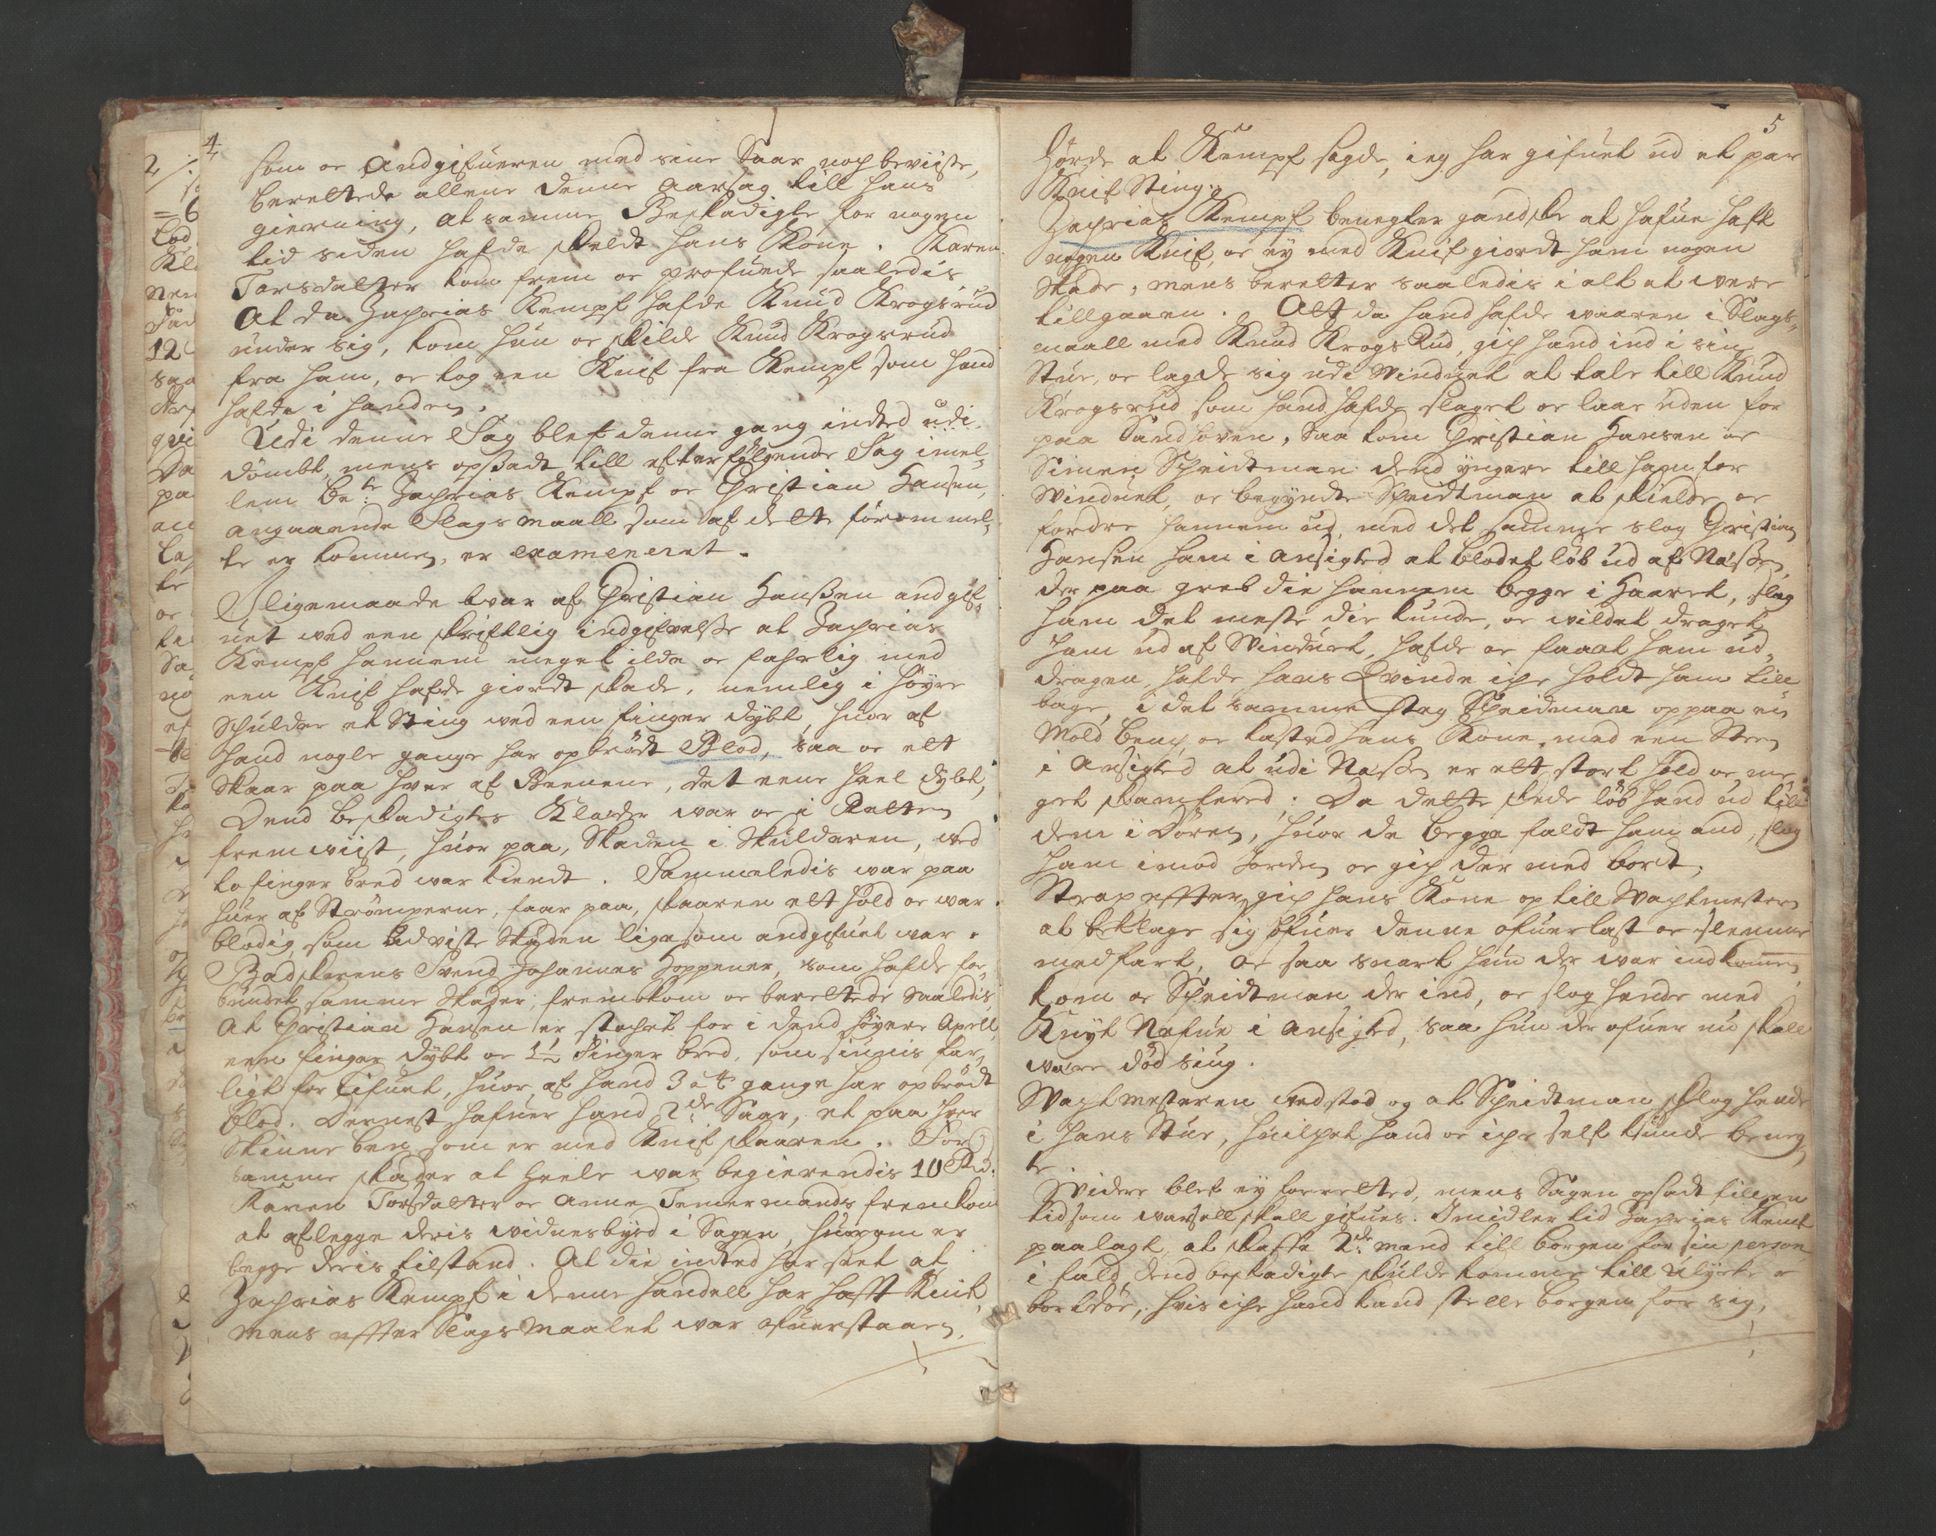 4
som oc Andgifueren med sine Saar noch beviiste,
berettede allene denne Aarsag till hans
gierning, at samme Beskadigte for nogen
tid siden hafde skeldt hans Kone. Karen
Torsdatter kom frem oc profuede saaledis
At da Zachrias Kempf hafde Knud Krogsrud
under sig, kom hun oc skilde Knud Krogsrud
fra ham, oc tog een Knif fra Kempf som hand
hafde i handen.
Udi denne Sag blef denne gang indted udi
dømbt, mens opsadt till efterfølgende Sag imel-
lem be.te Zachrias Kempf oc Christian Hansen,
angaaende Slagsmaall som af dette forommel-
te er kommen, er examineret.
Sligemaade war af Christian Hansen andgif-
uet wed een skriftlig indgifuelsse at Zachrias
Kempf hannem meget ilde oc fahrlig med
een Knif hafde giordt skade, nemlig i høyre
Schulder et Sting wed een finger dybt, huor af
hand nogle gange har opbrødt Blod, saa oc ett
Skaar paa huer af Benene, det eene heel dybt,
Dend beskadigtes Klæder war oc i Retten
fremwiist, huor paa, Skaden i Skulderen, wed
to finger bred war kiendt. Sammeledis war paa
huer af Strømperne, faar paa, skaaren ett hold oc war
blodig som udviste Skaden ligesom andgifuet war.
Badskierens Svend Johannes Hoppener, som hafde for-
bundet samme Skader, fremkom oc berettede saaledis
At Christian Hansen er stochet for i dend høyere Apell
een finger dybt oc 1½ Finger bred, som siunis far-
ligt for Lifuet, huor af hand 3 a 4 gange har opbrødt
blod. Dernest hafuer hand 2de Saar, et paa huer
Skinne been som er med Knif skaaren. For
samme skader at heele war begierendis 10 Rd.
Karen Torsdatter oc Anne Temermands fremkom
at aflegge deris widnesbyrd i Sagen, huorom er
begge deris tilstand. At die indted har seet at
Zachrias Kempf i denne handell har hafft Knif,
mens effter Slagsmaalet war ofuerstaaen,
5
hørde at Kempf sagde, ieg har gifuet ud et par
Knif Sting.
Zachrias Kempf benegter gandske at hafue haft
nogen Knif, oc ey med Knif giordt ham nogen
Skade, mens beretter saaledis i alt at were
tillgaaen. Att da hand hafde waaren i Slags-
maall med Knud Krogsrud, gich hand ind i sin
Stue, oc lagde sig udi Winduet at tale till Knud
Krogsrud som hand hafde slaget oc laae uden for
paa Sandhoven, Saa kom Christian Hansen oc
Simen Scheidtman dend yngere till ham for
Winduet, oc begyndte Scheidtman at skielde oc
fordre hannem ud, med det samme slog Christian
Hansen ham i ansigted at blodet løb ud af Næssen,
der paa greb die hannem begge i Haaret, slog
ham det meste die kunde, oc wildet draget
ham ud af Winduet, hafde oc faaet ham ud
dragen, hafde hans Qvinde iche holdt ham till
bage, i det samme steg Scheidman op paa en
Mold bench oc kasted hans Kone med een Steen
i Ansigted at udi Næssen er ett stort hold oc me-
get skamfered; Da dette skede løb hand ud till
dem i Døren, huor da begge faldt ham and, slog
ham imod Jorden oc gich der med bort,
Strax effter gich hans Kone op till Wachtmesteren
at beklage sig ofuer denne ofuerlast oc slemme
medfart, Oc saa snart hun der war indkommen
kom oc Scheidtman der ind, oc slog hende med
Knyt Nefue i Ansigted, saa hun der ofuer nu skall
were død siug.
Wachtmesteren wedstod og at Scheidtman slog hende
i hans Stue, huilchet hand oc iche self kunde beneg-
te.
Widere blef ey forretted, mens Sagen opsadt till en
tid som warsell skall gifues. Imidlertid Zachrias Kempf
paalagt, at skaffe 2de mend till borgen for sin person
i fald, dend beskadigte skulde komme till Ulyche oc
bortdøe, huis iche hand kand stelle borgen for sig,